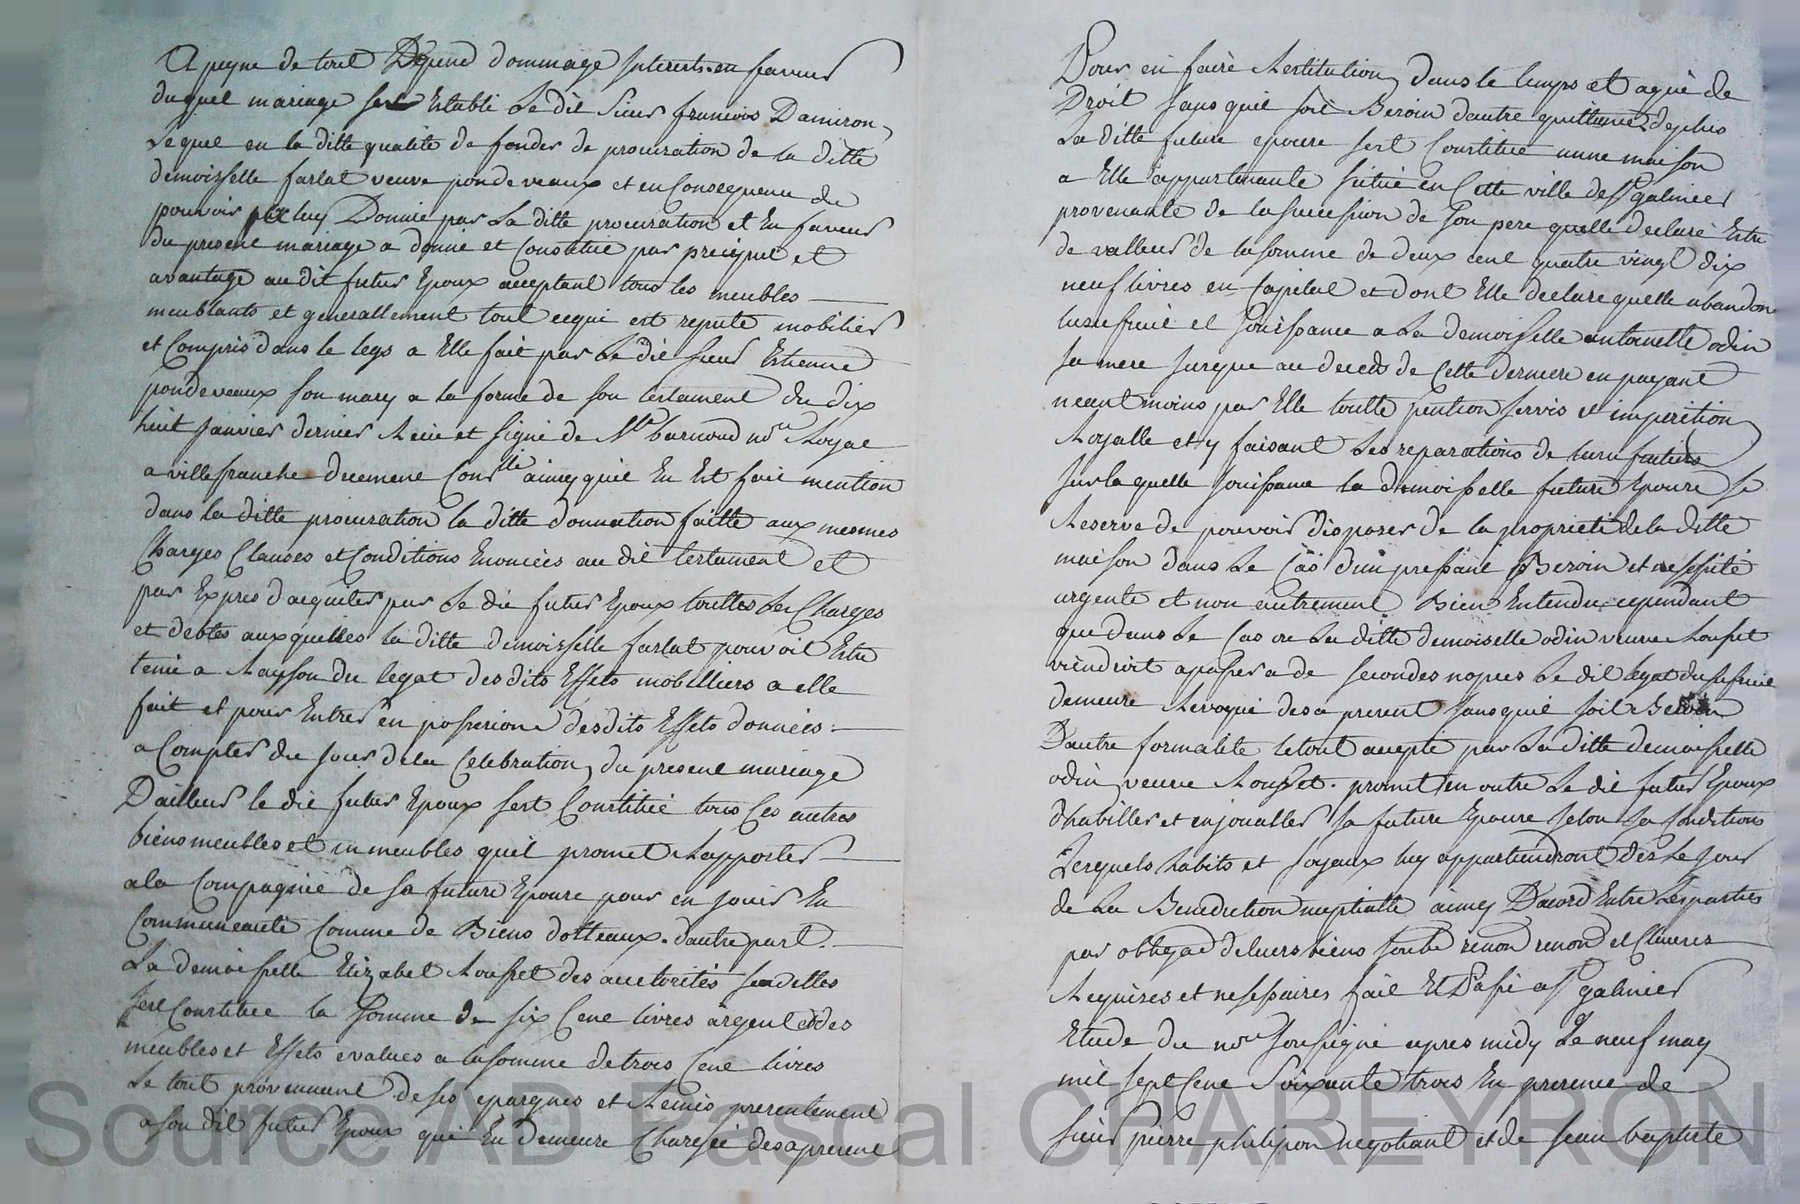 A peyne de tout Depend dommage Interests. en faveur
duquel mariage sest Establi Le dit Sieur francois Damiron
Lequel en la ditte qualité de fondé de procuration de la ditte
demoisselle farlat veuve pondeveaux et en Consequence de
pouvoir a luy Donnié par La ditte procuration et En faveur
du present mariage a donné et Constitué par preciput et
avantage au dit futur Epoux acceptant tous les meubles
meublants et generallement tout cequi est reputé mobilier
et Compris dans le legs a Elle fait par Le dit sieur Estienne
pondeveaux son mary a la forme de son testament du dix
huit Janvier dernier Receu et signé de Me barnoud nore Royal
a villefranche duement Conllé ainsy quil En Est fait mention
dans la ditte procuration la ditte donnation faitte aux mesmes
Charges Clauses et Conditions Enoncées au dit testament et
par Exprés dacquiter par Le dit futur Epoux touttes Les Charges
et debtes auxquelles la ditte demoisselle farlat pouvoit Etre
tenue a Rayson du legat desdits Effets mobilliers a elle
fait et pour Entrer en possession desdits Effets donnés
a Compter du Jour dela Celebration du present mariage
Dailleur le dit futur Epoux sest Constitué tous Ces autres
biens meubles et immeubles quil promet Rapporter
ala Compagnie de sa future Epouse pour en jouir En
Communeauté Comme de Biens dotteaux. dautre part
La demoisselle Elizabet Rousset des auctorités susdittes
sest Constituee la Somme de six Cent livres argent et des
meubles et Effets evalues a la somme de trois Cent livres
Le tout provennent de ses epargnes et Remis presentement
a son dit futur Epoux qui En demeure Chargé des apresent
Pour en faire Restitution dans le temps et a qui de
Droit sans quil soit Besoin dautre quittance deplus
La ditte future epouse sest Constituee une maison
a Elle appartenante situé en Cette ville de St galmier
provenante de la succession de Son pere quelle declare Estre
de valleur de la somme de deux cent quatre vingt dix
neuf livres en Capital et dont Elle declare quelle abandone
lusufruit et Jouissance a La demoisselle antoinette odin
sa mere Jusque au deceds de Cette derniere en payant
neantmoins par Elle toutte pention servis et imposition
Royalle et y faisant Les reparations de
sur la quelle Jouissance la demoisselle future Epouse se
Reserve de pouvoir disposer de la proprieté de la ditte
maison dans Le Cas dun pressant Besoin et nessesité
urgente et non autrement Bien Entendu cependant
que dans Le Cas ou La ditte demoiselle odin veuve Rousset
viendroit a passer a de secondes nopces Le dit legat dusufruit
demeure Revoqué des a present sans quil soit Besoin
Dautre formalité le tout accepté par La ditte demoisselle
odin veuve Rousset. promet en outre Le dit futur Epoux
dhabiller et enjoualler sa future Epouse selon sa Condition
Lesquels habits et joyaux luy appartiendront des Le Jour
de La Benediction nuptialle ainsy Dacord Entre Les parties
par obligaon de leurs biens soubs renon et Clauses
Requises et nessessaires fait Et Passé a St galmier
Etude du nore soussigné apres midy Le neuf may
mil sept Cent Soixante trois En presence de
sieur pierre philipon negotiant et de jean baptiste
Source AD Pascal CHAREYRON